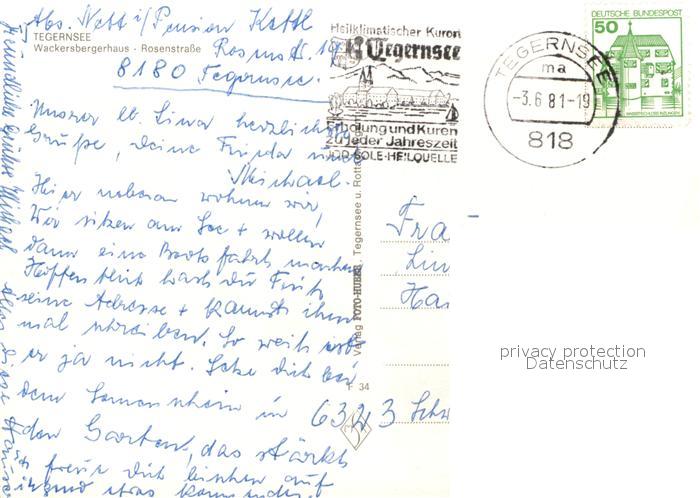 Abs. Nett i/ Pension Kattl
TEGERNSEE
Wackersbergerhaus · Rosenstraße
Rosenstr. 19
8180 Tegernsee.
Unserer lb. Lina herzliche
Grüße, Deine Frieda und
Michael.
Hier nebenan wohnen wir,
Wir sitzen am See + wollen
dann eine Bootsfahrt machen
Hoffentlich hast du Fritz
seine Adresse + kannst ihm
mal schreiben. So weit ist
er ja nicht. Setze Dich bei
dem Sonnenschein in
den Garten, das stärkt
+ freue Dich bischen auf
irgend etwas
Freundliche Grüße Michael
Heilklimatischer Kurort
Tegernsee
Erholung und Kuren
zu jeder Jahreszeit
JOD-SOLE-HEILQUELLE
TEGERNSEE
ma
-3.6.81-19
818
DEUTSCHE BUNDESPOST
50
WASSERSCHLOSS INZLINGEN
Verlag FOTO-HUBER, Tegernsee u. Rotta
F 34
Fra
Lin
Ha
6323 Schw
privacy protection
Datenschutz